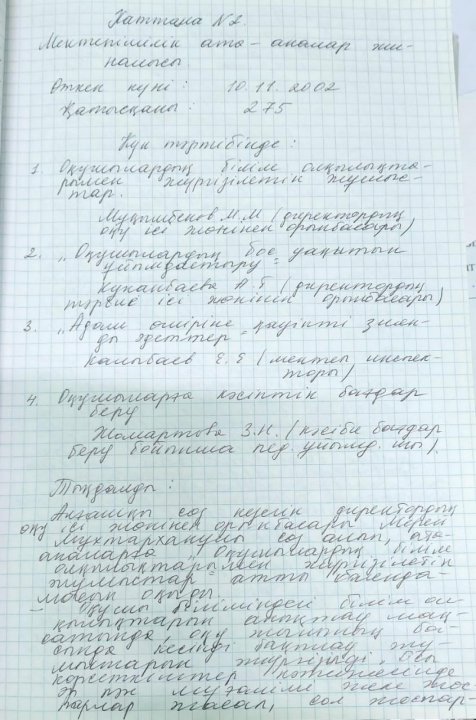 Хаттама №2
Мектепішілік ата-аналар жи-
налысы
Өткен күні: 10.11.2002
Қатысқаны: 275
Күн тәртібінде:
1. Оқушылардың білім олқылықта-
рымен жүргізілетін жұмыс-
тар.
Мұқымбеков М.М (директордың
оқу ісі жөнінен орынбасары)
2. "Оқушылардың бос уақытын
ұйымдастыру"
А.Т (директордың
тәрбие ісі жөнінен орынбасары)
3. "Адам өміріне қауіпті зиян-
ды әдеттер"
Калыбаев Е.Е (мектеп инспек-
торы)
4. Оқушыларға кәсіптік бағдар
беру
Жомартова З.Н. (кәсіби бағдар
беру бойынша пед. ұйымд. шы).
Тыңдалды:
Алғашқы сөз кезегін директордың
оқу ісі жөнінен орынбасары Мерей
Мұхтарханұлы сөз алып, ата-
аналарға "Оқушылардың білім
олқылықтарымен жүргізілетін
жұмыстар" атты баянда-
масын оқыды.
- Оқушы біліміндегі білім ол-
қылықтарын анықтау мақ-
сатында, оқу жылының ба-
сында кесінді бақылау жұ-
мыстарын жүргізіледі. Осы
көрсеткіштер нәтижесінде
әр пән мұғалімі жеке жос-
парлар жасап, сол жоспар-